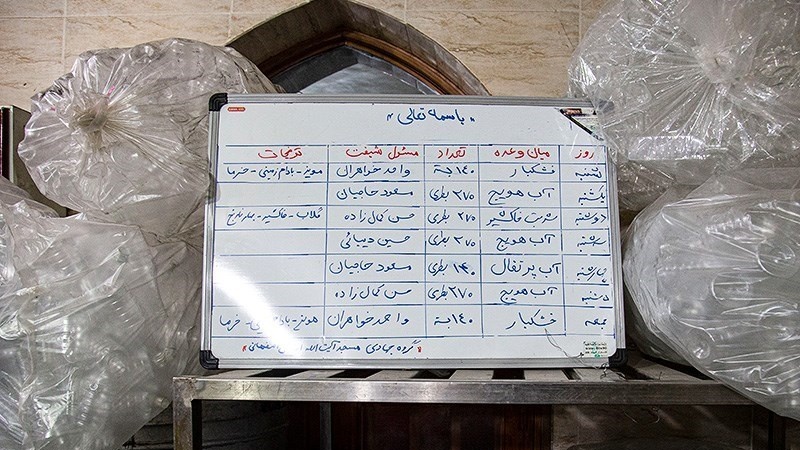 باسمه تعالی
روز میان وعده تعداد مسئول شیفت توضیحات
شنبه خشکبار ۱۴۰ بسته واحد خواهران مویز - بادام زمینی - خرما
یکشنبه آب هویج ۲۷۰ بطری مسعود حاجیان
دوشنبه شربت خاکشیر ۲۷۰ بطری حسن کمال زاده گلاب - خاکشیر - بهارنارنج
سه شنبه آب هویج ۲۷۰ بطری حسین دیبائی
چهارشنبه آب پرتقال ۱۴۰ بطری مسعود حاجیان
آب هویج ۲۷۰ بطری حسن کمال زاده
جمعه خشکبار ۱۴۰ بسته واحد خواهران مویز - بادام زمینی - خرما
گروه جهادی مسجد آیت الله